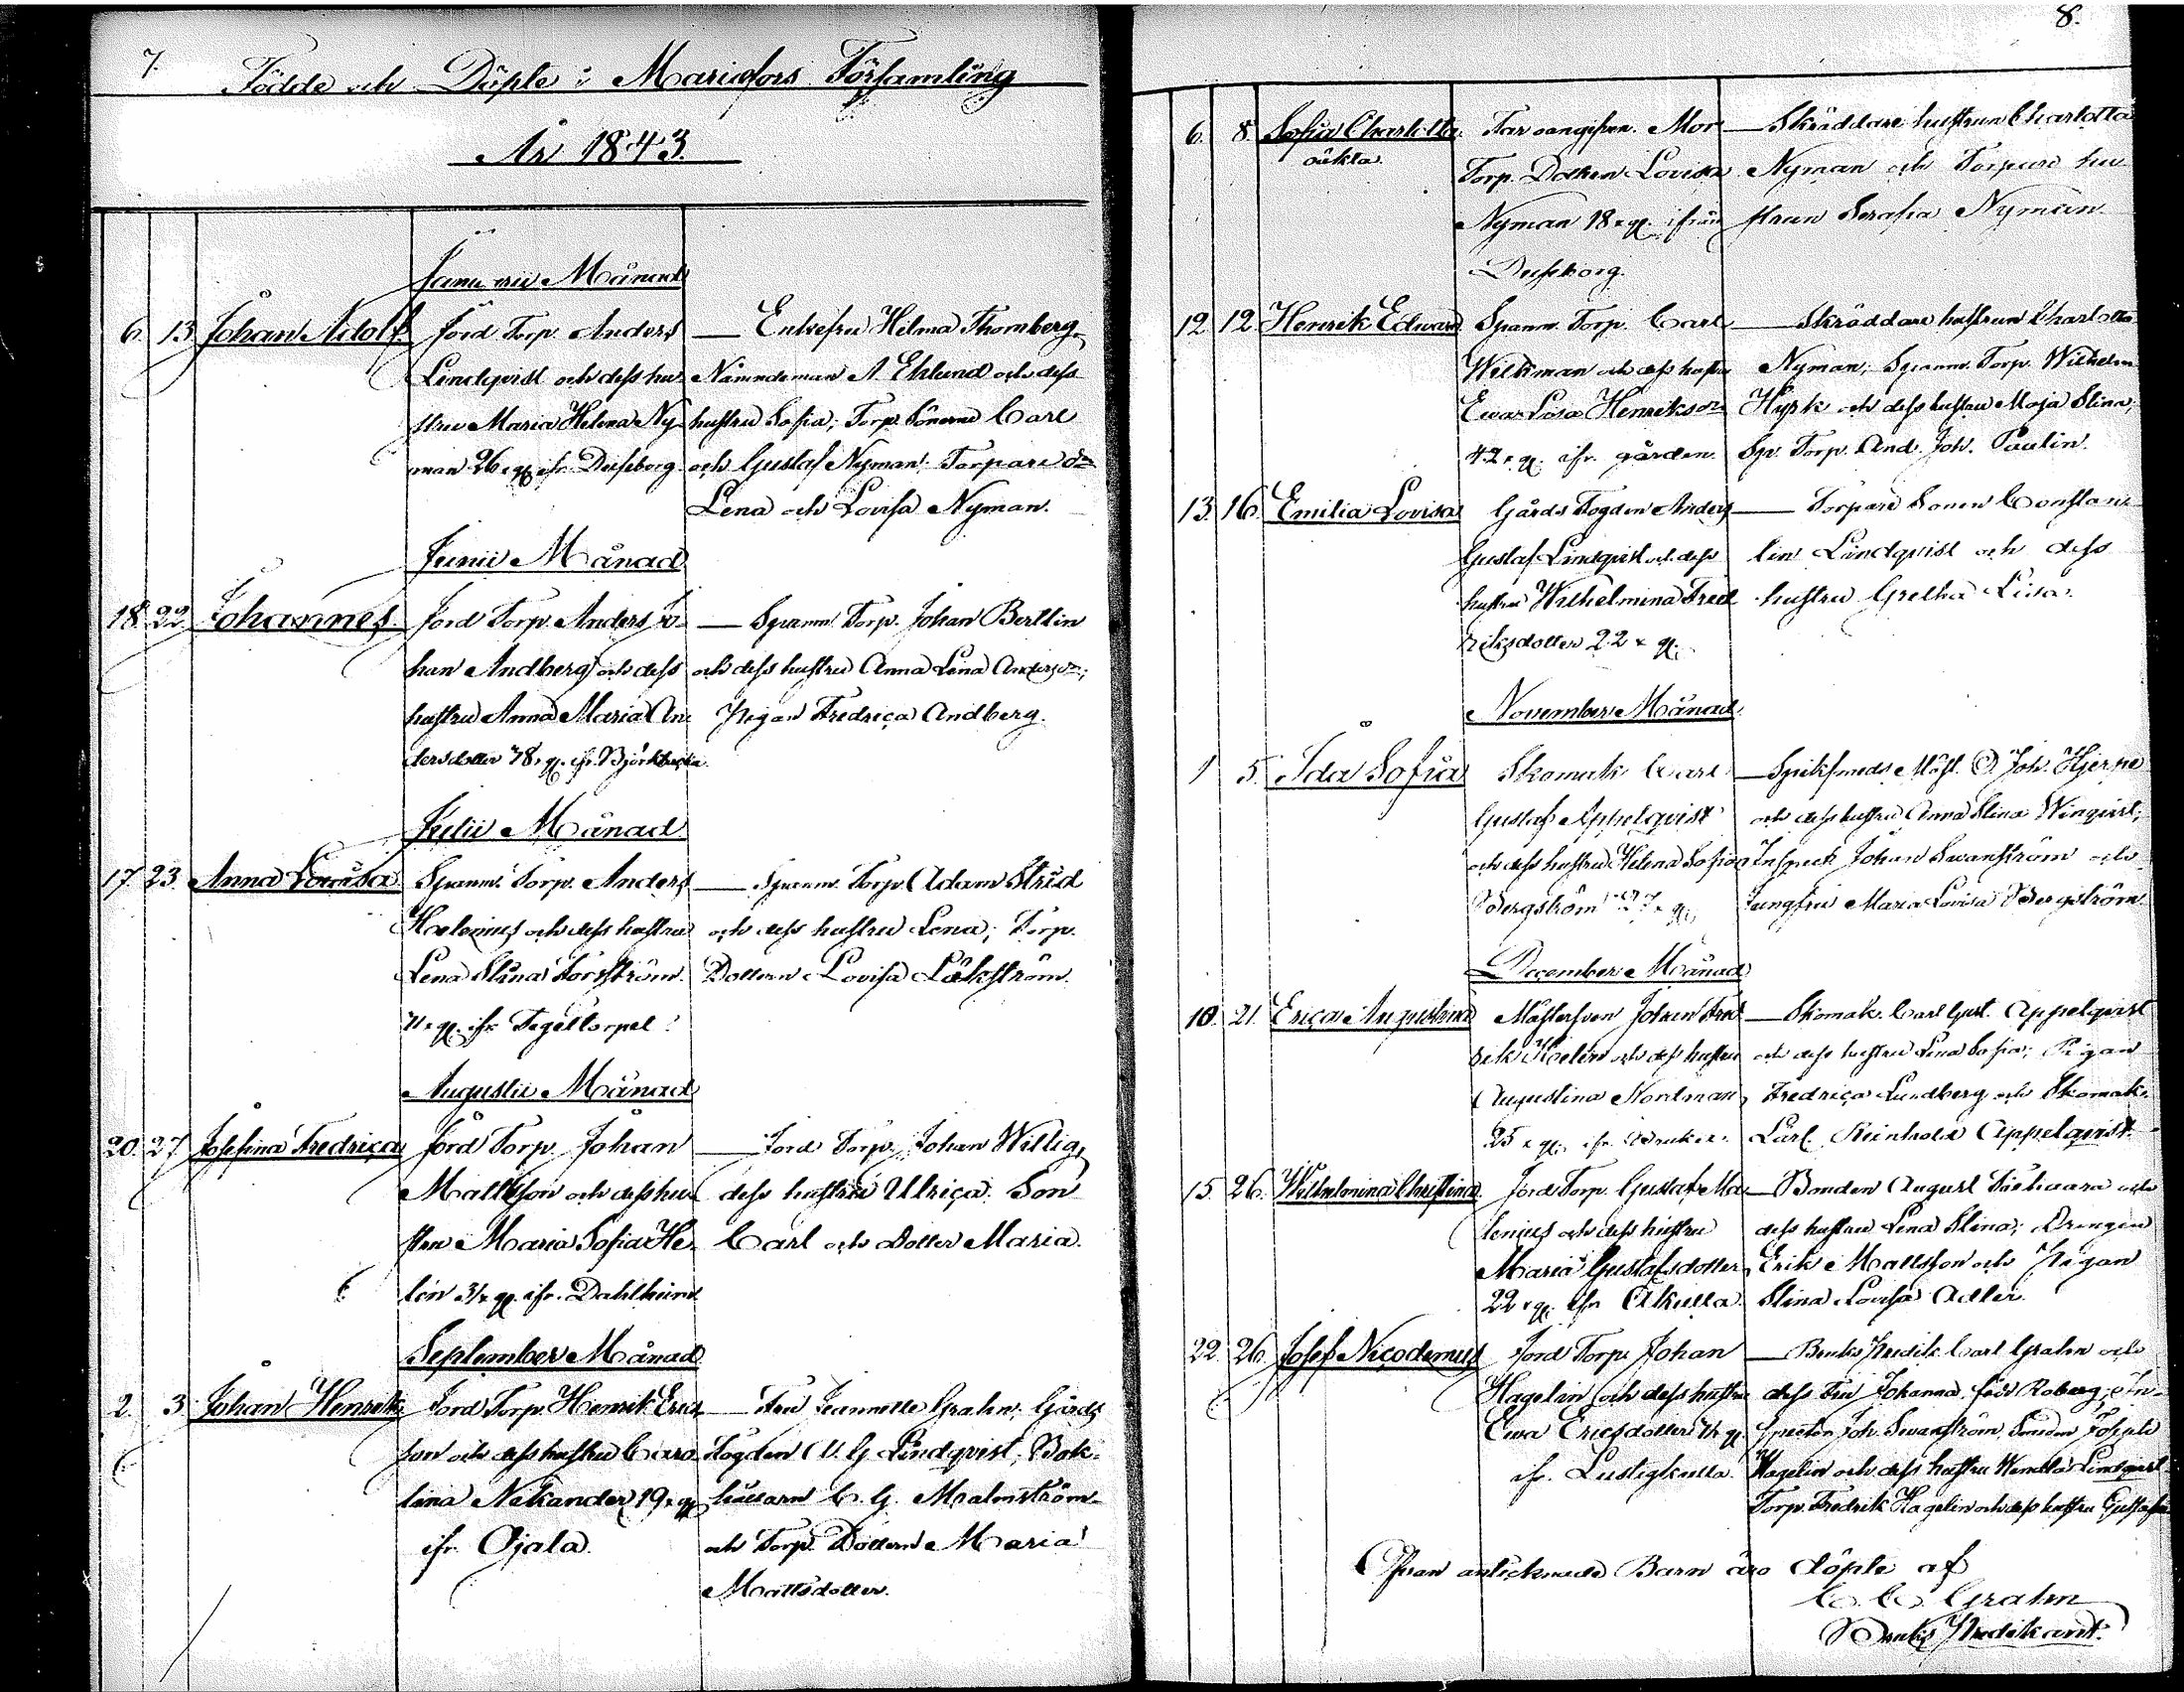 7.
Födde och Döpte i Mariefors Församling
År 1843.
Januarii Månad
6. 13. Johan Adolf. Jord Torp. Anders — Enkefru Helma Thornberg,
Lindqvist och dess hu- Nämndeman A. Ehlund och dess
stru Maria Helena Ny- hustru Sofia; Torp. Sönerne Carl
man 26 år gl. ifr. och Gustaf Nyman. Torpare
Lena och Lovisa Nyman.
Junii Månad
18. 22. Johannes. Jord Torp. Anders Jo- — Spanm. Torp. Johan Bertlin
han Andberg och dess och dess hustru Anna Lena
hustru Anna Maria An- Pigan Fredrica Andberg.
dersdotter ifr. Björkbacka.
Julii Månad
17. 23. Anna Lovisa Spanm. Torp. Anders — Spanm. Torp. Adam Strid
och dess hustru och dess hustru Lena; Torp.
Lena Stina Forsström. Dottern Lovisa
ifr. Tegeltorpet
Augustii Månad
20. 27. Josefina Fredrica Jord Torp. Johan — Jord Torp. Johan Willig,
Mattsson och dess hu- dess hustru Ulrica. Son
stru Maria Sofia He- Carl och Dotter Maria.
lén 31 år gl. ifr. Dahlheim
September Månad
2. 3. Johan Henrik Jord Torp. Henrik Erics- — Fru Jeannette Grahn, Gårds
son och dess hustru Caro- Fogden A. G. Lindqvist, Bok-
lina Nekander 19 år gl. hållarn C. G. Malmström
ifr. Ojala. och Torp. Dottern Maria
Mattsdotter.
8.
6. 8. Sofia Charlotta. Far oangifven. Mor — Skräddare hustrun Charlotta
oäkta. Torp. Dottren Lovisa Nyman och Torpare hu-
Nyman 18 år gl. ifrån strun Serafia Nyman.
12. 12. Henrik Edward Spanm. Torp. Carl — Skräddare hustrun Charlotta
Wilkman och dess hustru Nyman; Spanm. Torp. Wilhelm
Ewa Lisa Henriksdr och dess hustru Maja Stina;
42 år gl. ifr. gården. Sp. Torp. And. Joh. Paulin.
13. 16. Emilia Lovisa Gårds Fogden Anders — Torpare Sonen Constan-
Gustaf Lindqvist och dess tin Lindqvist och dess
hustru Wilhelmina Fred- hustru Gretha Lisa.
riksdotter 22 år gl.
November Månad
1 5. Ida Sofia Skomak. Carl — Spiksmeds Mäst. A. Joh. Hjerpe
Gustaf Appelqvist och dess hustru Anna Stina Winqvist;
och dess hustru Helena Sofia Inspect. Johan Swanström och
Bergström 27 år gl. Jungfru Maria Lovisa Bergström.
December Månad
10. 21. Erica Augustina Mästersven Johan Fred- — Skomak. Carl Gust. Appelqvist
rik och dess hustru och dess hustru Lena Sofia; Pigan
Augustina Nordman, Fredrica Lundberg och Skomak.
25 år gl. ifr. Bruket. Carl Reinhold Appelqvist.
15. 26. Wilhelmina Christina Jord Torp. Gustaf Ma- — Bonden August och
lenius och dess hustru dess hustru Lena Stina; Drengen
Maria Gustafsdotter Erik Mattsson och Pigan
22 år gl. ifr. Akulla. Stina Lovisa Adler.
22. 26. Josef Nicodemus Jord Torp. Johan — Bruks Predik. Carl Grahn och
Hagelin och dess hustru dess Fru Johanna född Roberg; In-
Ewa Ericsdotter gl. spector Joh. Swanström, Smeden
ifr. Lustigkulla. Hagelin och dess hustru Lindqvist
Torp. Fredrik Hagelin och dess hustru
Ofvan antecknade Barn äro döpte af
C. C. Grahn
Bruks Predikant.